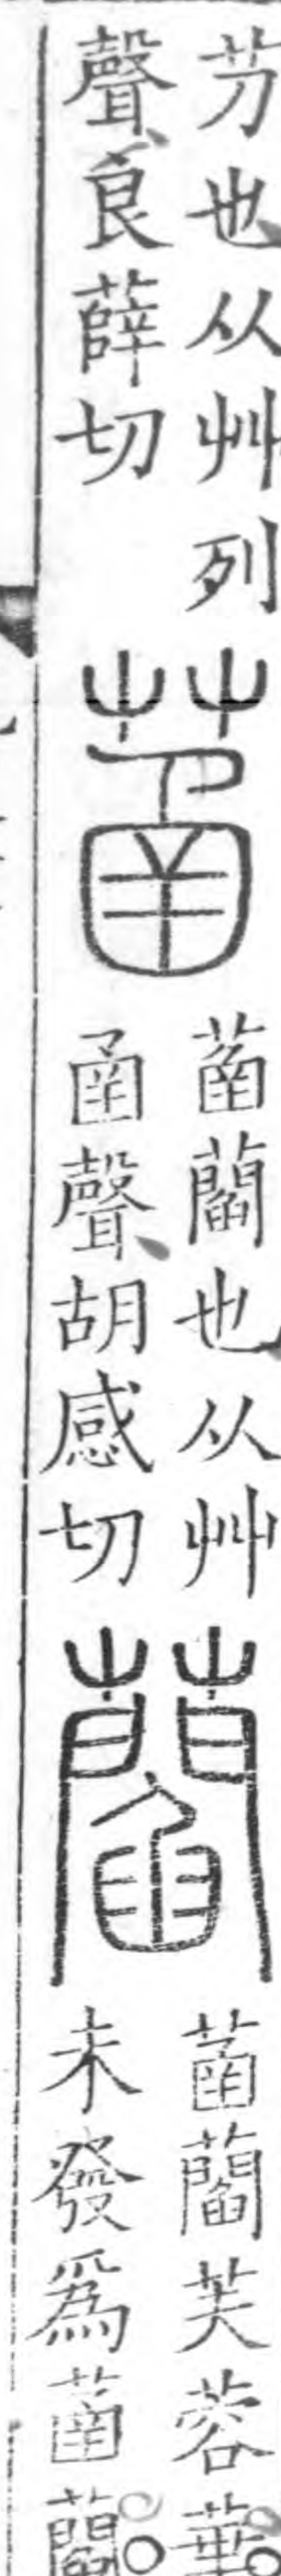 芀也从艸列
聲良薛切
菡
菡𧂄也从艸
圅聲胡感切
𧂄
菡𧂄芙蓉華
未發爲菡𧂄